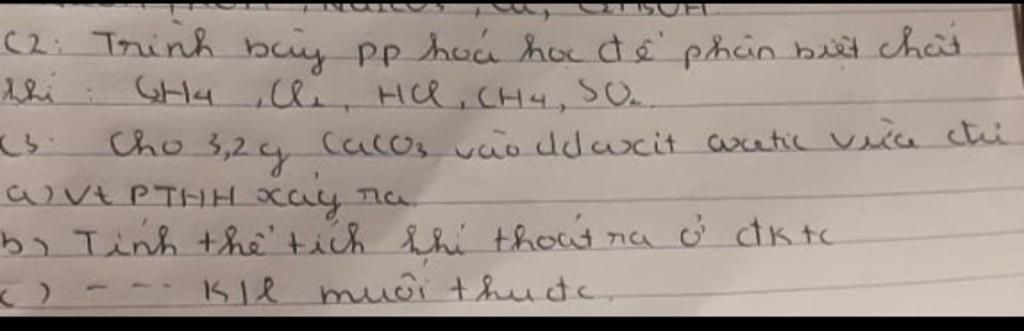 C2: Trình bày pp hoá học để phân biệt chất
khí : C2H4, Cl2, HCl, CH4, SO2
C3: Cho 3,2g CaCO3 vào dd axit axetic vừa đủ
a) Vt PTHH xảy ra.
b) Tính thể tích khí thoát ra ở đktc
c) ---- Kll muối thu đc.